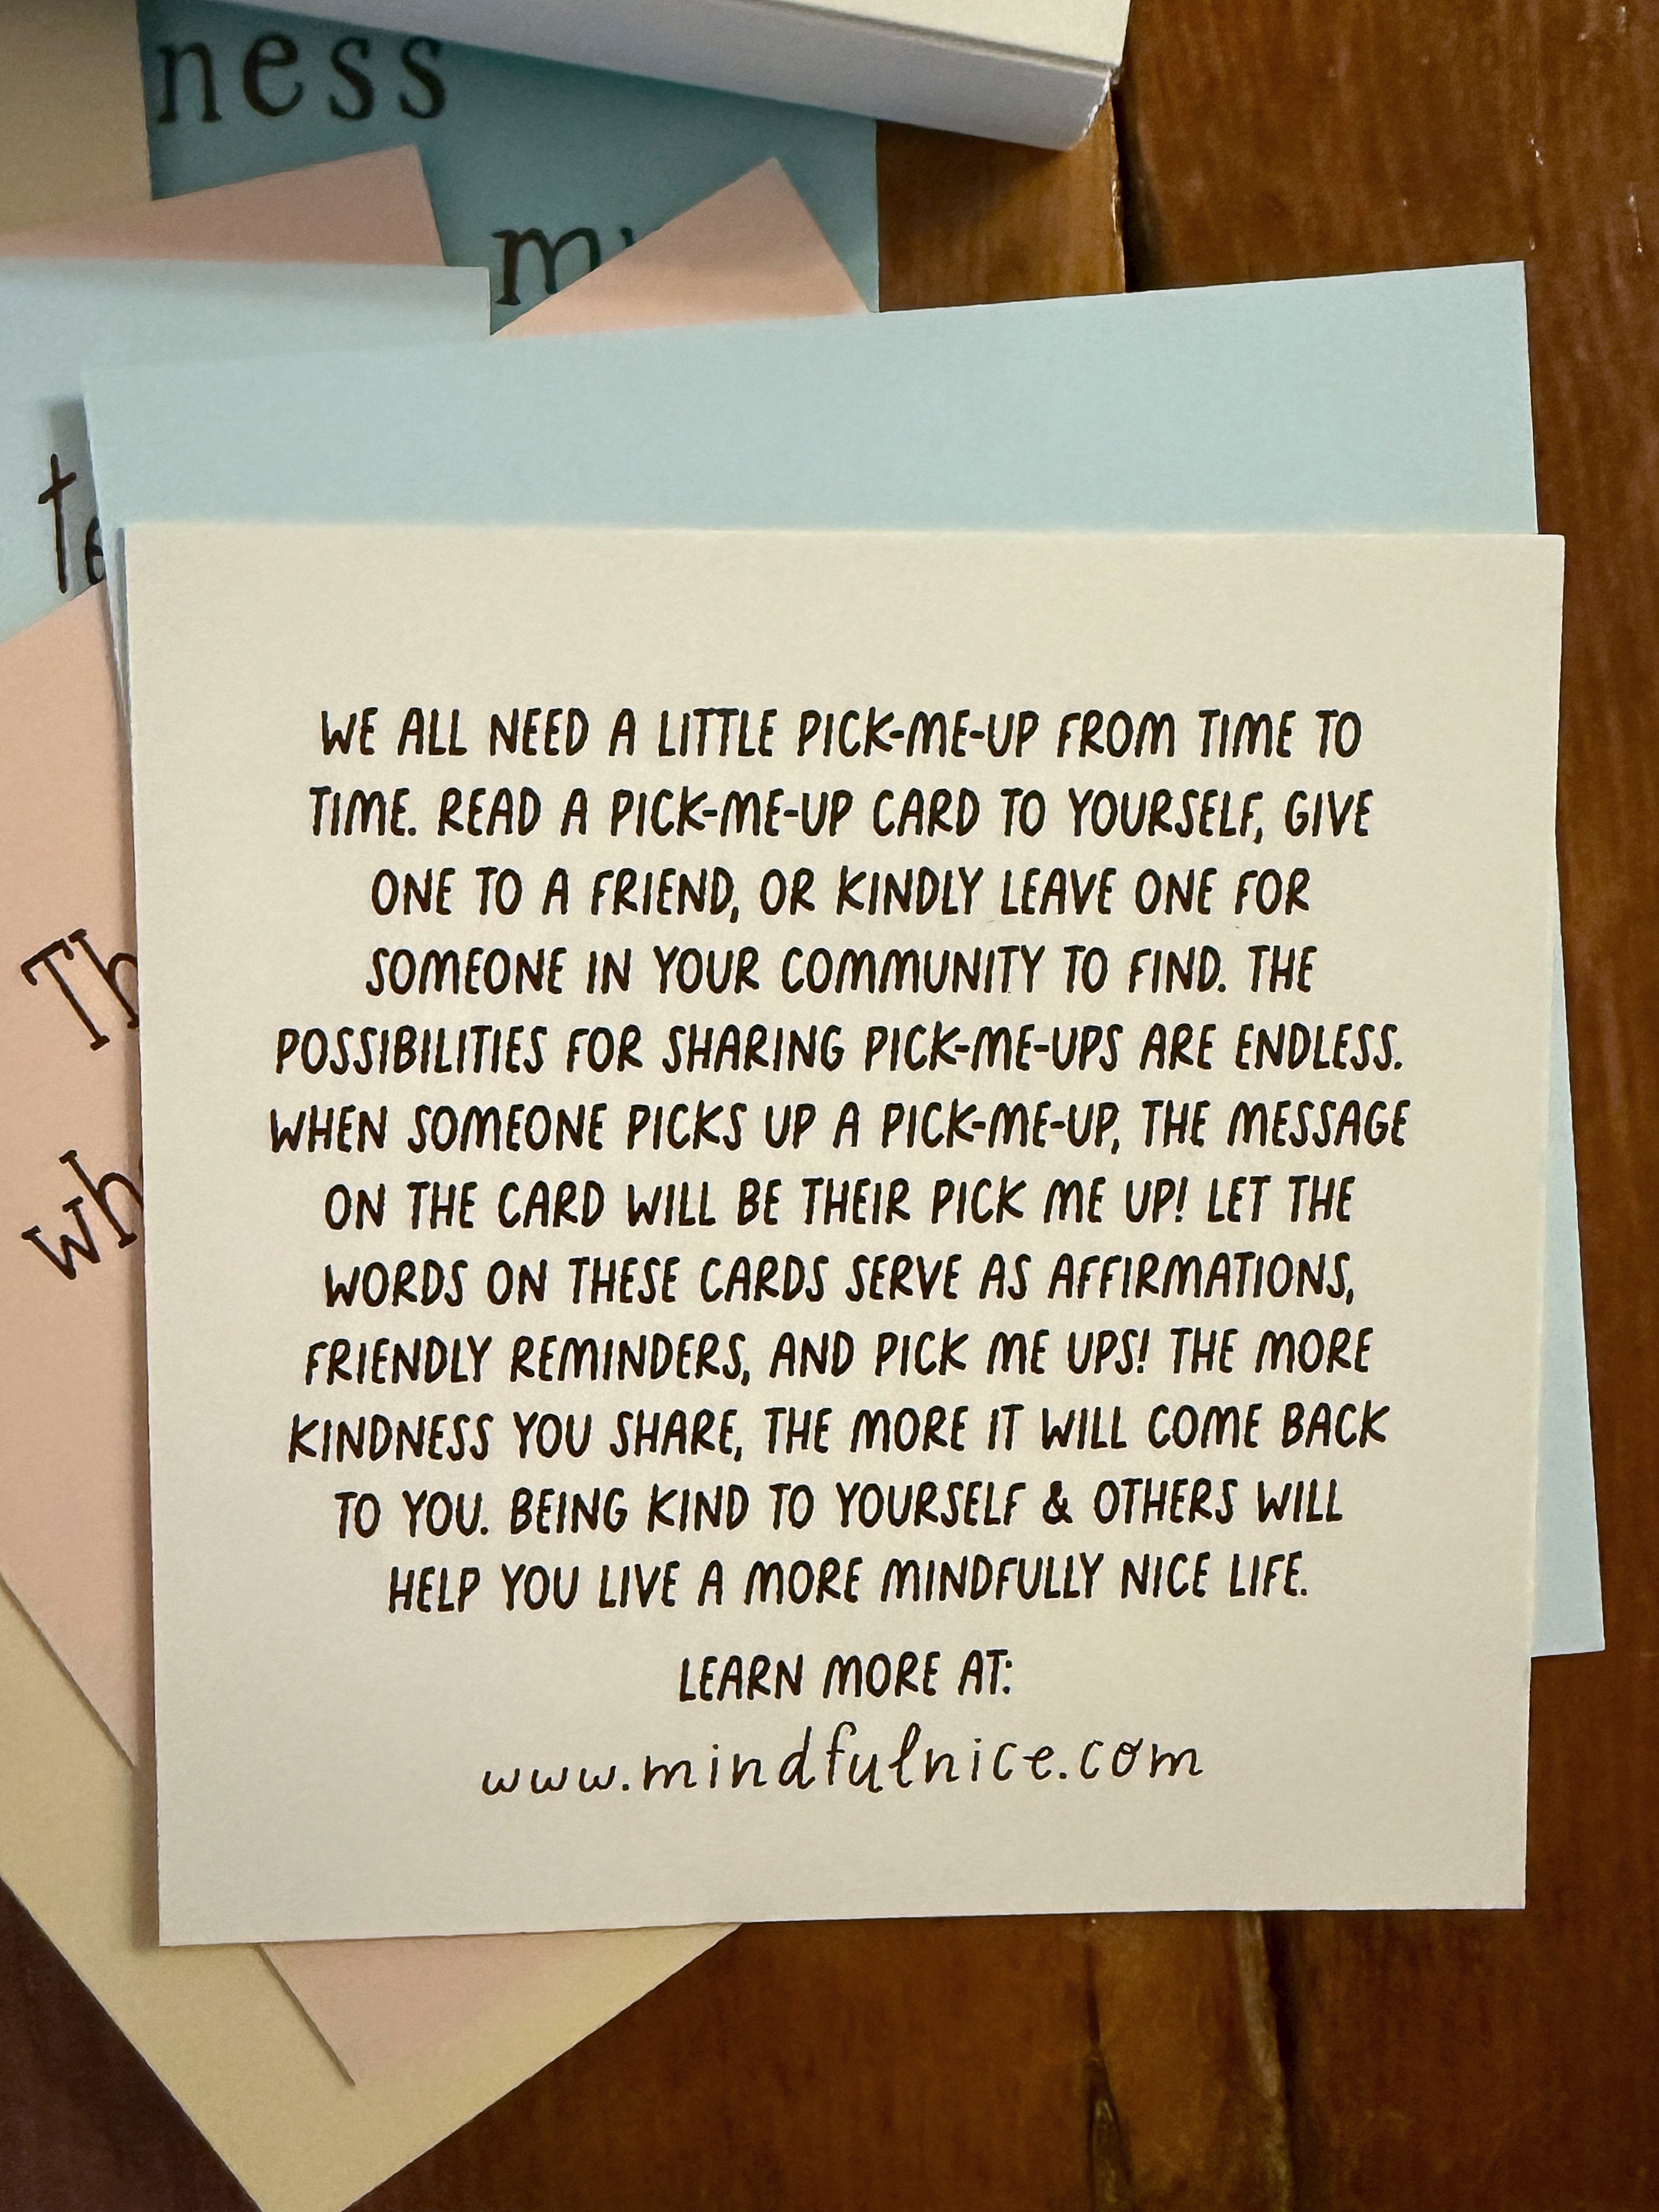 ness
WE ALL NEED A LITTLE PICK-ME-UP FROM TIME TO
TIME. READ A PICK-ME-UP CARD TO YOURSELF, GIVE
ONE TO A FRIEND, OR KINDLY LEAVE ONE FOR
SOMEONE IN YOUR COMMUNITY TO FIND. THE
POSSIBILITIES FOR SHARING PICK-ME-UPS ARE ENDLESS.
WHEN SOMEONE PICKS UP A PICK-ME-UP, THE MESSAGE
ON THE CARD WILL BE THEIR PICK ME UP! LET THE
WORDS ON THESE CARDS SERVE AS AFFIRMATIONS,
FRIENDLY REMINDERS, AND PICK ME UPS! THE MORE
KINDNESS YOU SHARE, THE MORE IT WILL COME BACK
TO YOU. BEING KIND TO YOURSELF & OTHERS WILL
HELP YOU LIVE A MORE MINDFULLY NICE LIFE.
LEARN MORE AT:
www.mindfulnice.com